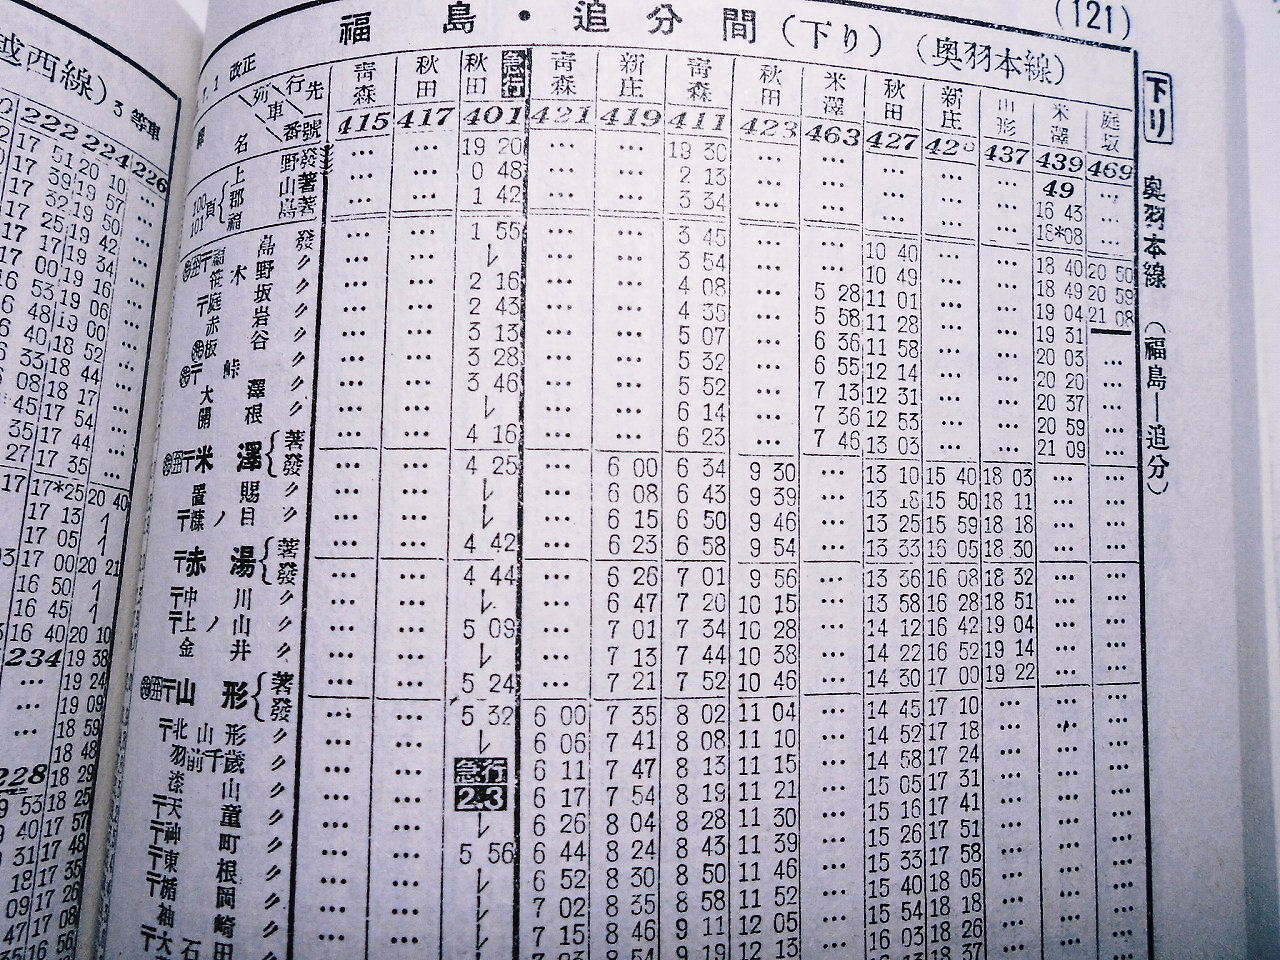 (121)
福島・追分間(下り)(奥羽本線)
下り 奥羽本線 (福島—追分)
越西線) 3 等車
7. 1 改正
行先 青森 秋田 秋田 急行 青森 新庄 青森 秋田 米澤 秋田 新庄 山形 米澤 庭坂
列車番號 415 417 401 421 419 411 423 463 427 437 439 469
驛名
100 101 頁
上野發 … … 19 20 … … 19 30 … … … … … 49 …
郡山著 … … 0 48 … … 2 13 … … … … … 16 43 …
福島著 … … 1 42 … … 3 34 … … … … … 18*08 …
福島發 … … 1 55 … … 3 45 … … 10 40 … … 18 40 20 50
笹木野〃 … … レ … … 3 54 … … 10 49 … … 18 49 20 59
庭坂〃 … … 2 16 … … 4 08 … 5 28 11 01 … … 19 04 21 08
赤岩〃 … … 2 43 … … 4 35 … 5 58 11 28 … … 19 31
板谷〃 … … 3 13 … … 5 07 … 6 36 11 58 … … 20 03 …
峠〃 … … 3 28 … … 5 32 … 6 55 12 14 … … 20 20 …
大澤〃 … … 3 46 … … 5 52 … 7 13 12 31 … … 20 37 …
関根〃 … … レ … … 6 14 … 7 36 12 53 … … 20 59 …
米澤著 … … 4 16 … … 6 23 … 7 46 13 03 … … 21 09 …
發 … … 4 25 … 6 00 6 34 9 30 … 13 10 15 40 18 03 … …
置賜〃 … … レ … 6 08 6 43 9 39 … 13 18 15 50 18 11 … …
糠ノ目〃 … … レ … 6 15 6 50 9 46 … 13 25 15 59 18 18 … …
赤湯著 … … 4 42 … 6 23 6 58 9 54 … 13 33 16 05 18 30 … …
發 … … 4 44 … 6 26 7 01 9 56 … 13 36 16 08 18 32 … …
中川〃 … … レ … 6 47 7 20 10 15 … 13 58 16 28 18 51 … …
上ノ山〃 … … 5 09 … 7 01 7 34 10 28 … 14 12 16 42 19 04 … …
金井〃 … … レ … 7 13 7 44 10 38 … 14 22 16 52 19 14 … …
山形著 … … 5 24 … 7 21 7 52 10 46 … 14 30 17 00 19 22 … …
發 … … 5 32 6 00 7 35 8 02 11 04 … 14 45 17 10 … … …
北山形〃 … … レ 6 06 7 41 8 08 11 10 … 14 52 17 18 … … …
羽前千歳〃 … … 急行 6 11 7 47 8 13 11 15 … 14 58 17 24 … … …
漆山〃 … … 2.3 6 17 7 54 8 19 11 21 … 15 05 17 31 … … …
天童〃 … … レ 6 26 8 04 8 28 11 30 … 15 16 17 41 … … …
神町〃 … … 5 56 6 44 8 24 8 43 11 39 … 15 26 17 51 … … …
東根〃 … … レ 6 52 8 30 8 50 11 46 … 15 33 17 58 … … …
楯岡〃 … … レ 7 02 8 35 8 58 11 52 … 15 40 18 05 … … …
袖崎〃 … … レ 7 15 8 46 9 11 12 05 … 15 54 18 18 … … …
大石田 9 19 12 13 … 16 03 18 26 … … …
222 224 226
17 51 20 10 …
17 39 19 57 …
17 32 19 50 …
17 25 19 42 …
17 17 19 34 …
17 00 19 16 …
16 53 19 06 …
48 19 00 …
40 18 52 …
33 18 44 …
08 18 17 …
45 17 54 …
35 17 44 …
27 17 35 …
17 17*25 20 40
17 13
17 05
17 00 20 21
16 50
16 45
16 40 20 10
234 19 38
… 19 24
… 19 09
… 18 59
18 48
228 18 29
53 18 25
40 17 57
31 17 48
18 17 35
09 17 26
47 17 08
35 16 56